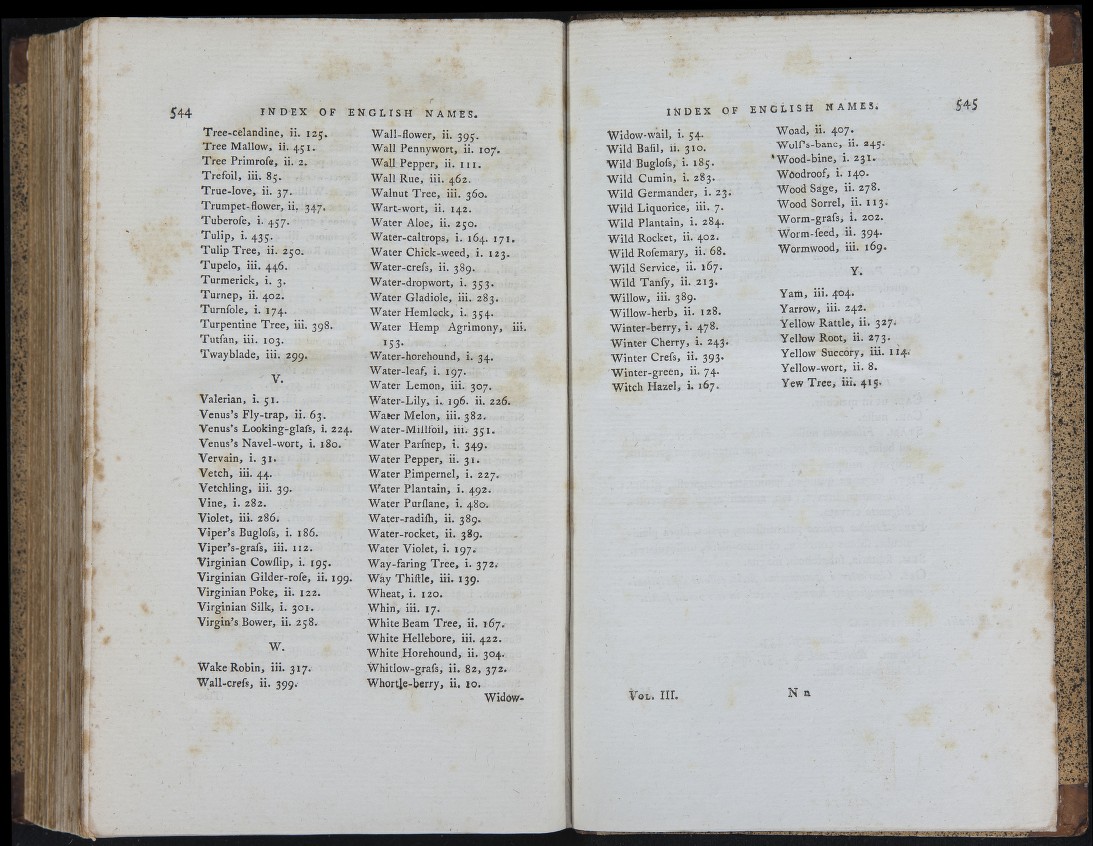 544
INDEX OF ENGLISH NAMES.
Tree-celandine, ii. 125.
Tree Mallow, ii. 451.
Tree Primroſe, ii. 2.
Trefoil, iii. 85.
True-love, ii. 37.
Trumpet-flower, ii. 347.
Tuberoſe, i. 457.
Tulip, i. 435.
Tulip Tree, ii. 250.
Tupelo, iii. 446.
Turmerick, i. 3.
Turnep, ii. 402.
Turnſole, i. 174.
Turpentine Tree, iii. 398.
Tutſan, iii. 103.
Twayblade, iii. 299.
V.
Valerian, i. 51.
Venus's Fly-trap, ii. 63.
Venus's Looking-glaſs, i. 224.
Venus's Navel-wort, i. 180.
Vervain, i. 31.
Vetch, iii. 44.
Vetchling, iii. 39.
Vine, i. 282.
Violet, iii. 286.
Viper's Bugloſs, i. 186.
Viper's-graſs, iii. 112.
Virginian Cowſlip, i. 195.
Virginian Gilder-roſe, ii. 199.
Virginian Poke, ii. 122.
Virginian Silk, i. 301.
Virgin's Bower, ii. 258.
W.
Wake Robin, iii. 317.
Wall-creſs, ii. 399.
Wall-flower, ii. 395.
Wall Pennywort, ii. 107.
Wall Pepper, ii. 111.
Wall Rue, iii. 462.
Walnut Tree, iii. 360.
Wart-wort, ii. 142.
Water Aloe, ii. 250.
Water-caltrops, i. 164. 171.
Water Chick-weed, i. 123.
Water-creſs, ii. 389.
Water-dropwort, i. 353.
Water Gladiole, iii. 283.
Water Hemlock, i. 354.
Water Hemp Agrimony, iii.
153.
Water-horehound, i. 34.
Water-leaf, i. 197.
Water Lemon, iii. 307.
Water-Lily, i. 196. ii. 226.
Water Melon, iii. 382.
Water-Millfoil, iii. 351.
Water Parſnep, i. 349.
Water Pepper, ii. 31.
Water Pimpernel, i. 227.
Water Plantain, i. 492.
Water Purſlane, i. 480.
Water-radiſh, ii. 389.
Water-rocket, ii. 389.
Water Violet, i. 197.
Way-faring Tree, i. 372.
Way Thiſtle, iii. 139.
Wheat, i. 120.
Whin, iii. 17.
White Beam Tree, ii. 167.
White Hellebore, iii. 422.
White Horehound, ii. 304.
Whitlow-graſs, ii. 82, 372.
Whortle-berry, ii. 10.
Widow-
INDEX OF ENGLISH NAMES.
545
Widow-wail, i. 54.
Wild Baſil, ii. 310.
Wild Bugloſs, i. 185.
Wild Cumin, i. 283.
Wild Germander, i. 23.
Wild Liquorice, iii. 7.
Wild Plantain, i. 284.
Wild Rocket, ii. 402.
Wild Roſemary, ii. 68.
Wild Service, ii. 167.
Wild Tanſy, ii. 213.
Willow, iii. 389.
Willow-herb, ii. 128.
Winter-berry, i. 478.
Winter Cherry, i. 243.
Winter Creſs, ii. 393.
Winter-green, ii. 74.
Witch Hazel, i. 167.
Woad, ii. 407.
Wolf's-bane, ii. 245.
Wood-bine, i. 231.
Woodroof, i. 140.
Wood Sage, ii. 278.
Wood Sorrel, ii. 113.
Worm-graſs, i. 202.
Worm-ſeed, ii. 394.
Wormwood, iii. 169.
Y.
Yam, iii. 404.
Yarrow, iii. 242.
Yellow Rattle, ii. 327.
Yellow Root, ii. 273.
Yellow Succory, iii. 114.
Yellow-wort, ii. 8.
Yew Tree, iii. 415.
VOL. III.
N n